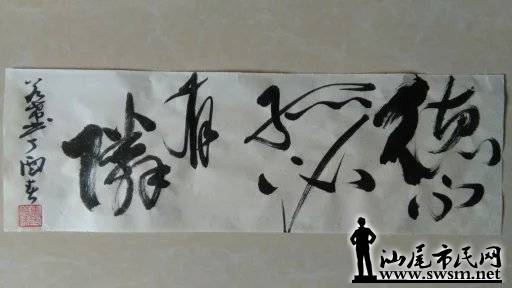 德不孤必有隣
丁酉春
汕尾市民网
www.swsm.net